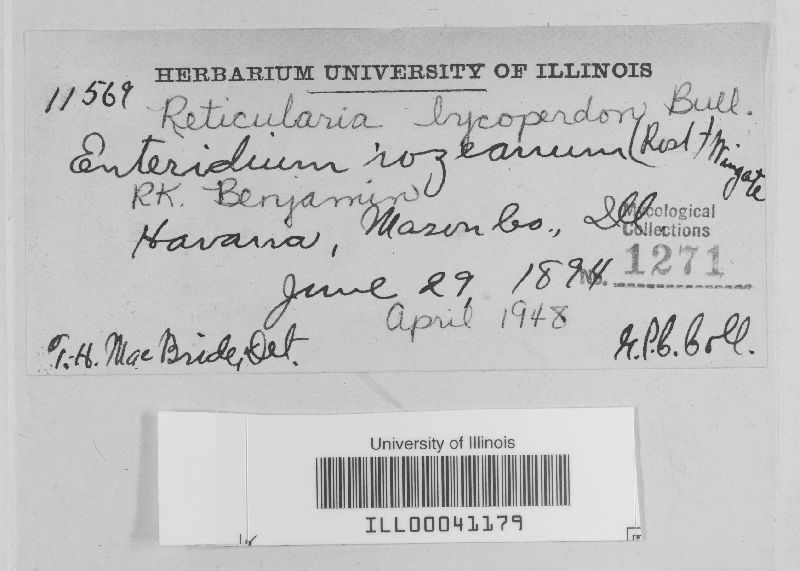 HERBARIUM UNIVERSITY OF ILLINOIS
11569
Reticularia lycoperdon Bull.
Enteridium rozeanum (Rost) Wingate
RK. Benjamin
Havana, Mason Co., Ill.
Mycological
Collections
No. 1271
June 29, 1894
April 1948
T.H. MacBride, Det.
G.P.C. Coll.
University of Illinois
ILL00041179